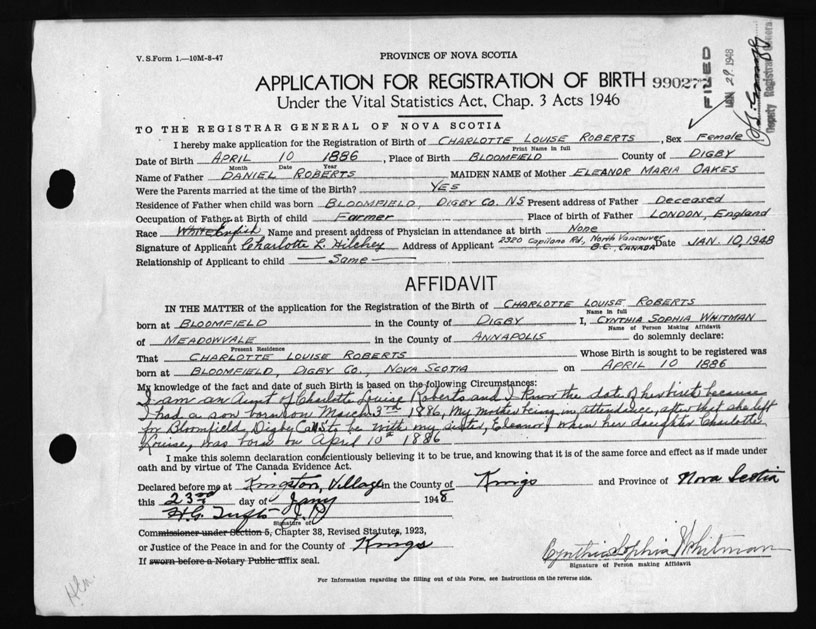 V. S. Form 1.—10M-8-47
PROVINCE OF NOVA SCOTIA
APPLICATION FOR REGISTRATION OF BIRTH 99027
Under the Vital Statistics Act, Chap. 3 Acts 1946
FILED
JAN 29 1948
Deputy Registrar General
TO THE REGISTRAR GENERAL OF NOVA SCOTIA
I hereby make application for the Registration of Birth of CHARLOTTE LOUISE ROBERTS, Sex Female
Print Name in full
Date of Birth APRIL 10 1886, Place of Birth BLOOMFIELD County of DIGBY
Month Date Year
Name of Father DANIEL ROBERTS MAIDEN NAME of Mother ELEANOR MARIA OAKES
Were the Parents married at the time of Birth? YES
Residence of Father when child was born BLOOMFIELD, DIGBY CO. NS Present address of Father Deceased
Occupation of Father at Birth of child Farmer Place of birth of Father LONDON, England
Race WHITE English Name and present address of Physician in attendance at birth None
Signature of Applicant Charlotte L. Hilchey Address of Applicant 2320 Capilano Rd, North Vancouver B.C. CANADA Date JAN. 10, 1948
Relationship of Applicant to child Same
AFFIDAVIT
IN THE MATTER of the application for the Registration of the Birth of CHARLOTTE LOUISE ROBERTS
Name in full
born at BLOOMFIELD in the County of DIGBY I, CYNTHIA SOPHIA WHITMAN
Name of Person Making Affidavit
of MEADOWVALE in the County of ANNAPOLIS do solemnly declare:
Present Residence
That CHARLOTTE LOUISE ROBERTS Whose Birth is sought to be registered was
born at BLOOMFIELD, DIGBY CO., NOVA SCOTIA on APRIL 10 1886
My knowledge of the fact and date of such Birth is based on the following Circumstances:
I am an Aunt of Charlotte Louise Roberts and I know the date of her birth because
I had a son born on March 3rd 1886, My mother being in attendance, after that she left
for Bloomfield, Digby Co. to be with my sister, Eleanor, when her daughter Charlotte
Louise, was born on April 10th 1886
I make this solemn declaration conscientiously believing it to be true, and knowing that it is of the same force and effect as if made under
oath and by virtue of The Canada Evidence Act.
Declared before me at Kingston, Village in the County of Kings and Province of Nova Scotia
this 23rd day of Jany 1948
H. G. Tufts J.P.
Signature of
Commissioner under Section 5, Chapter 38, Revised Statutes, 1923,
or Justice of the Peace in and for the County of Kings
If sworn before a Notary Public affix seal.
Cynthia Sophia Whitman
Signature of Person making Affidavit
For Information regarding the filling out of this Form, see Instructions on the reverse side.